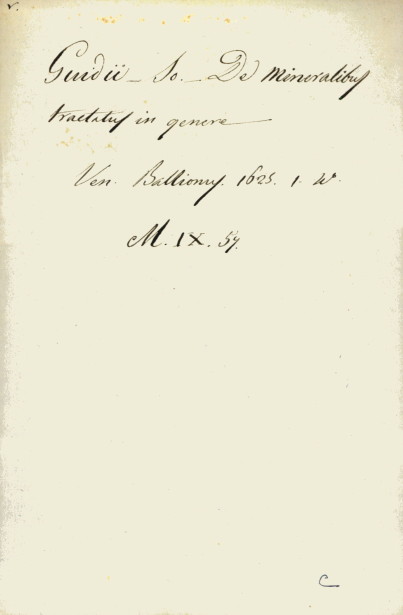 v.
Guidii _ Jo. _ De mineralibus
tractatus in genere
Ven. Ballionus. 1625. 1. 4°.
M. IX. 57.
C